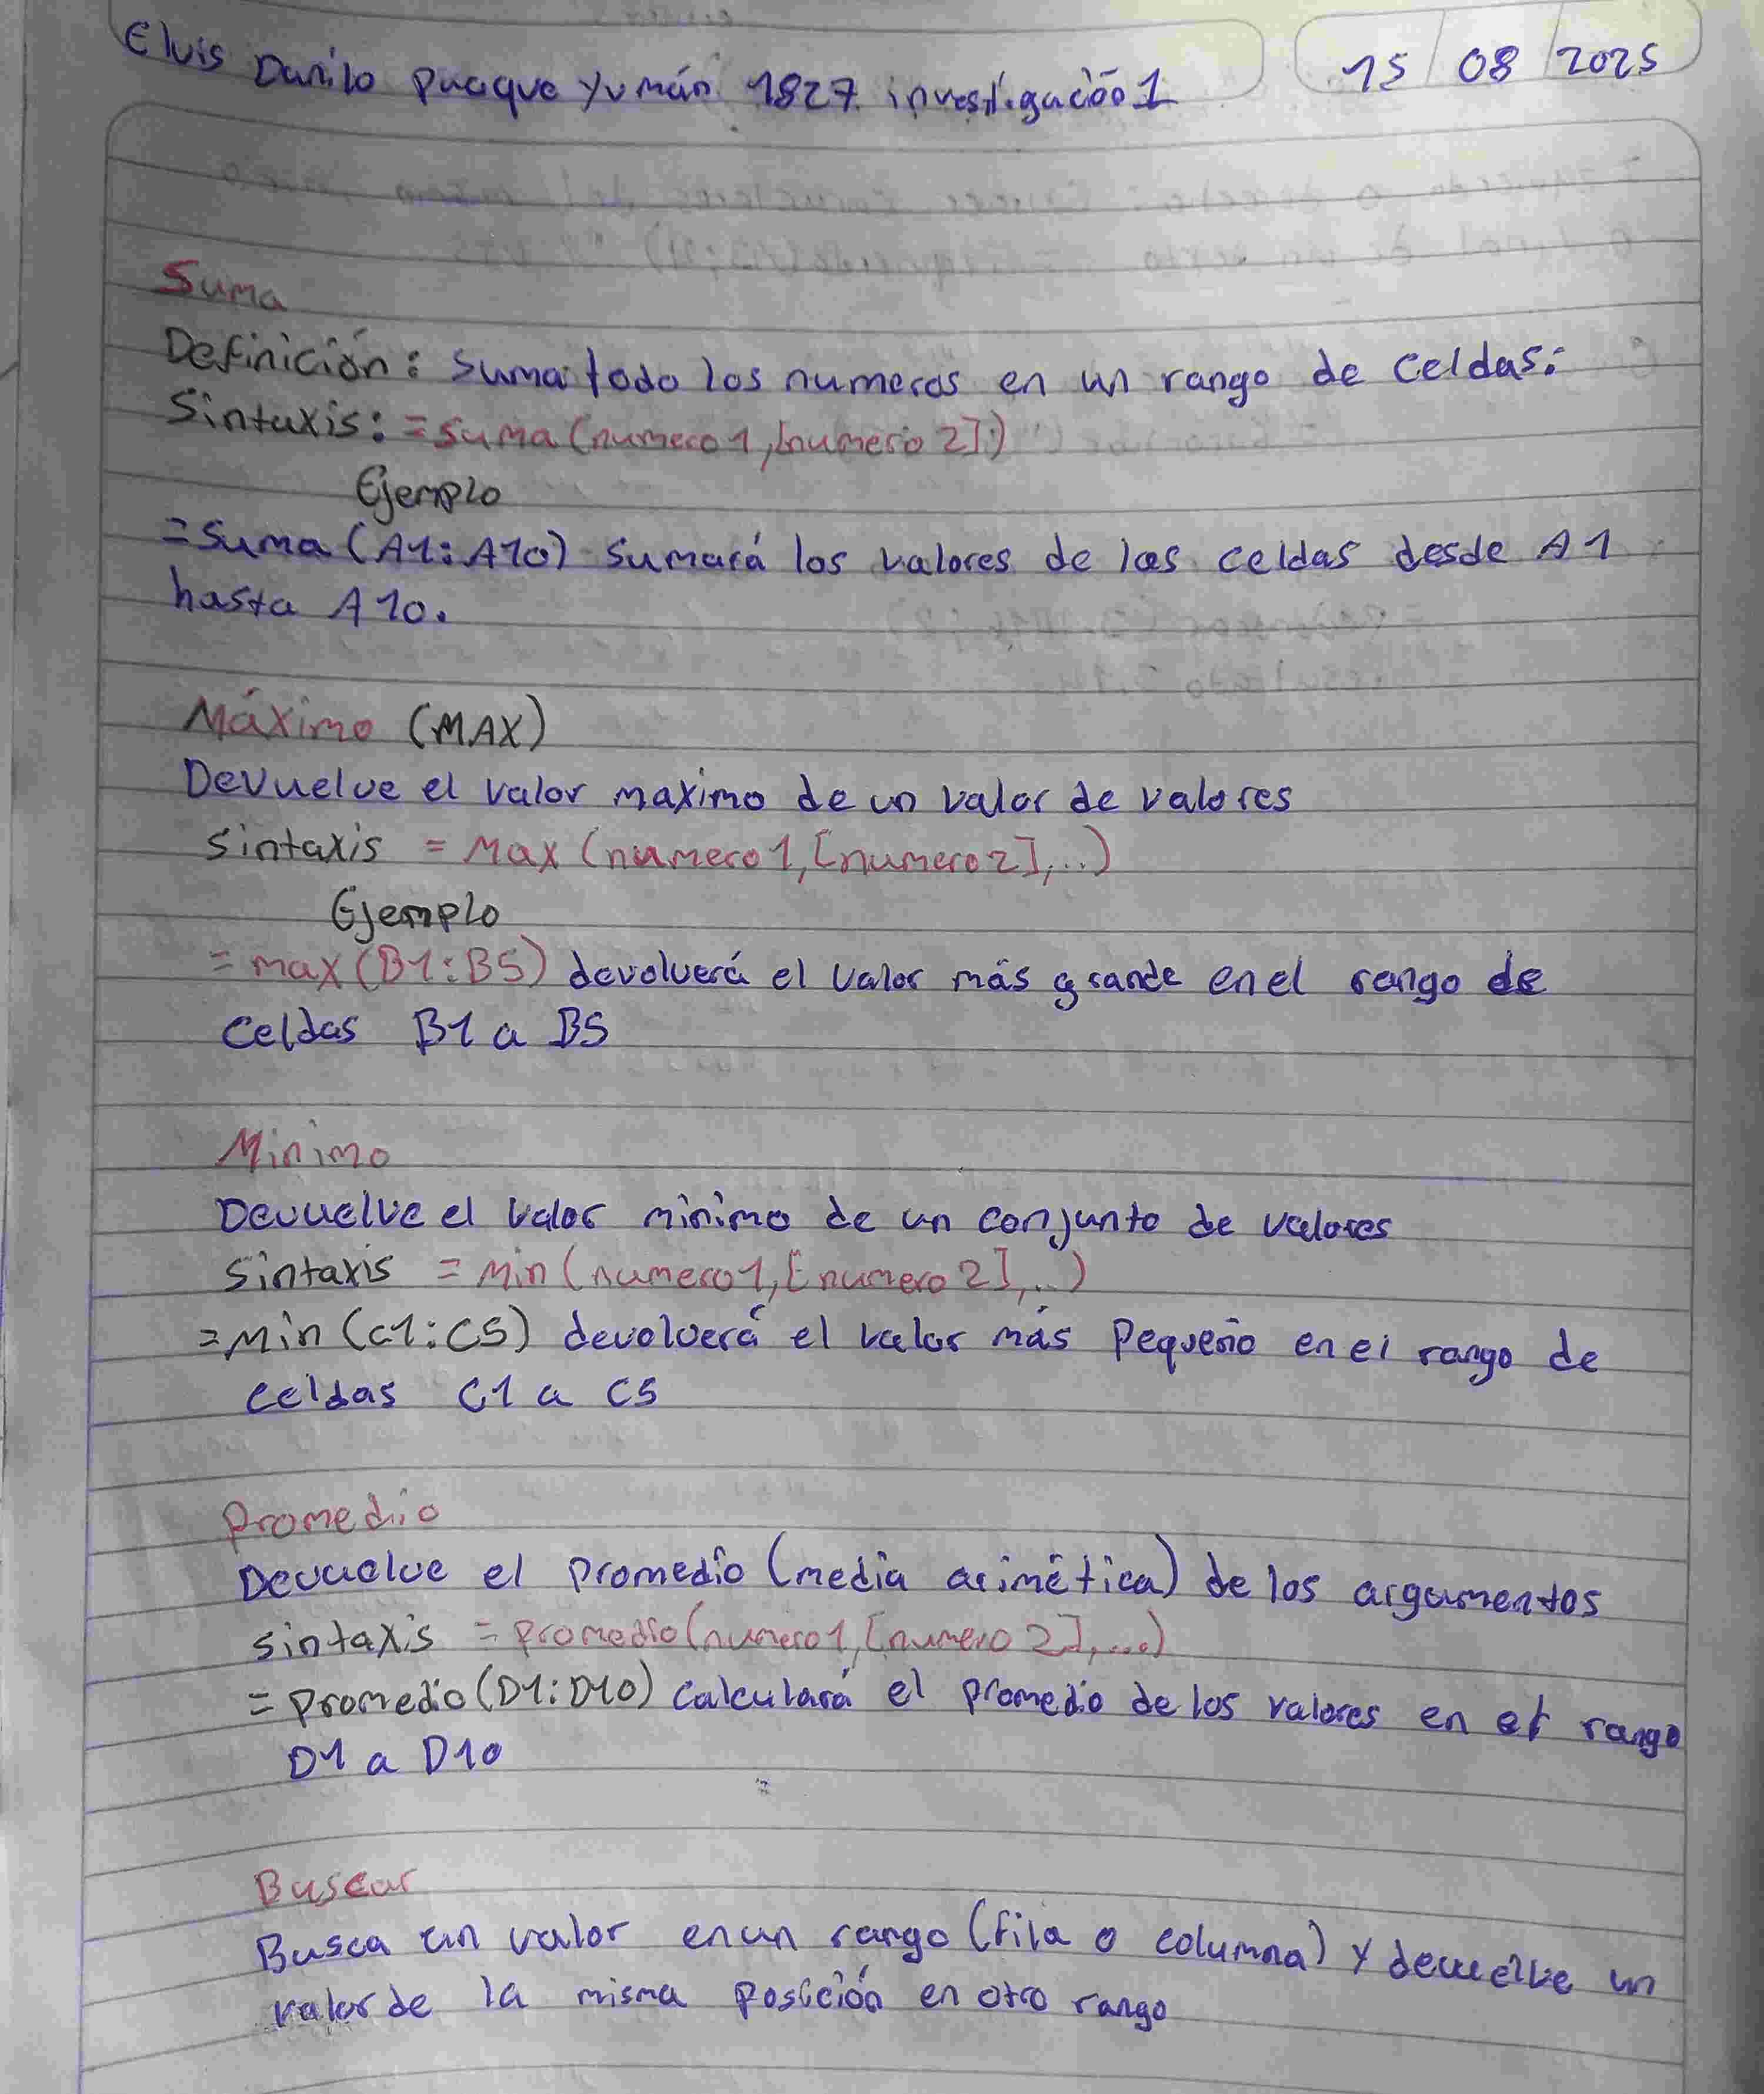 Elvis Danilo Puaque Yumán 1827 investigación 1
15 / 08 / 2025
Suma
Definición: Suma todo los numeros en un rango de celdas:
Sintaxis: =Suma (numero 1, [numero 2])
Ejemplo
=Suma (A1:A10) Sumará los valores de las celdas desde A1
hasta A10.
Máximo (MAX)
Devuelve el valor maximo de un valor de valores
Sintaxis = Max (numero 1, [numero 2], ..)
Ejemplo
= max (B1:B5) devolverá el valor más grande en el rango de
Celdas B1 a B5
Minimo
Devuelve el valor minimo de un conjunto de valores
Sintaxis = Min (numero 1, [numero 2], ..)
= Min (C1:C5) devolverá el valor más Pequeño en el rango de
celdas C1 a C5
Promedio
Devuelve el promedio (media arimética) de los argumentos
sintaxis = Promedio (numero 1, [numero 2], ...)
= Promedio (D1:D10) Calculará el promedio de los valores en el rango
D1 a D10
Buscar
Busca un valor en un rango (fila o columna) y devuelve un
valor de la misma posición en otro rango